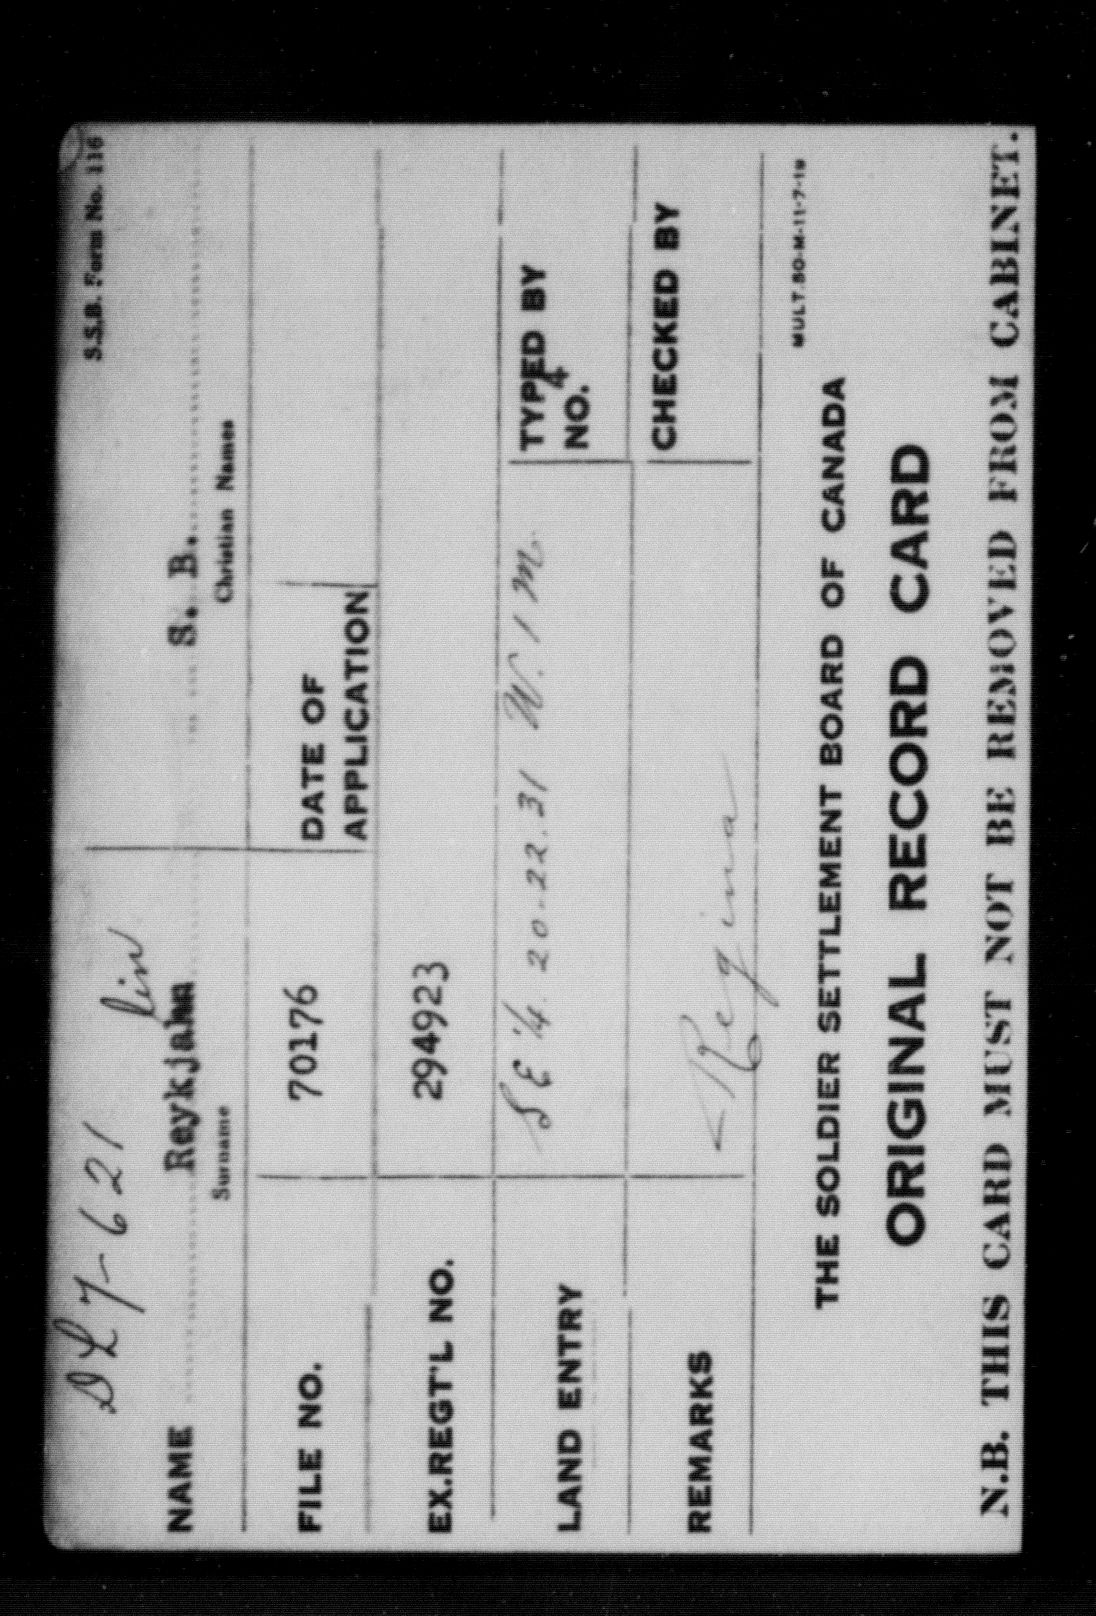 S.S.B. Form No. 116
DL 7-621
lin
NAME Reykjahn S. B.
Surname Christian Names
FILE NO. 70176 DATE OF APPLICATION
EX.REGT'L NO. 294923
LAND ENTRY SE ¼. 20-22.31 W. 1 M. TYPED BY NO. 4
REMARKS Regina CHECKED BY
MULT.50-M-11-7-19
THE SOLDIER SETTLEMENT BOARD OF CANADA
ORIGINAL RECORD CARD
N.B. THIS CARD MUST NOT BE REMOVED FROM CABINET.